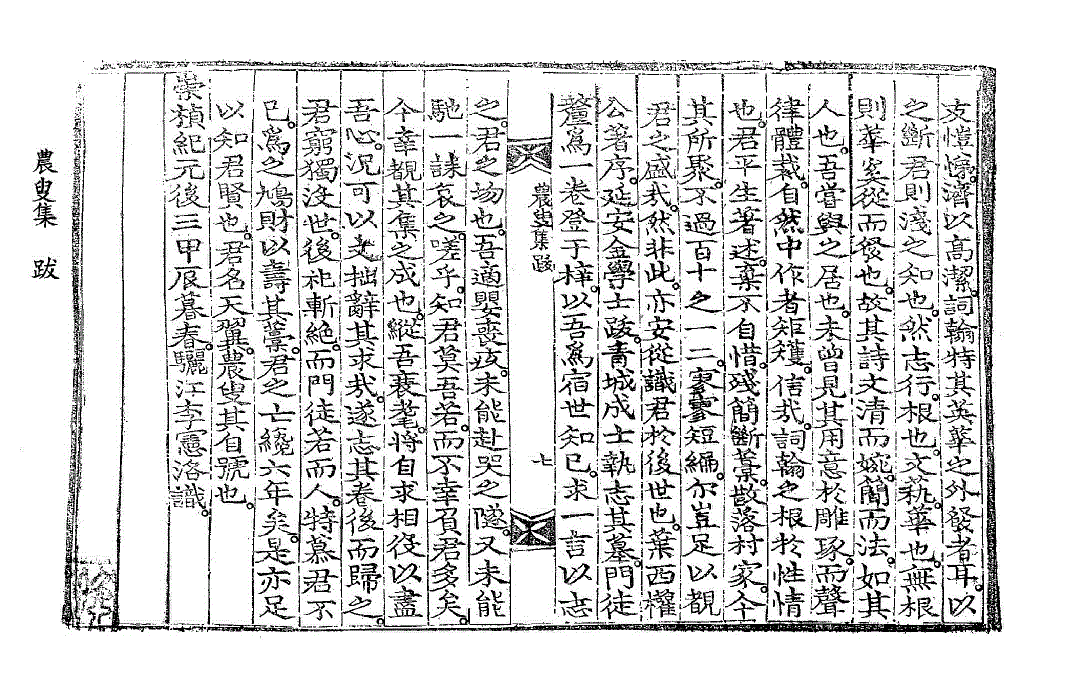 友愷悌濟以高潔詞翰特其英華之外發者耳以
之斷君則淺之知也然志行根也文藝華也無根
則華奚從而發也故其詩文清而婉簡而法如其
人也吾嘗與之居也未曾見其用意於雕琢而聲
律體裁自然中作者矩矱信哉詞翰之根於性情
也君平生著述棄不自惜殘簡斷藁散落村家今
其所聚不過百十之一二寥寥短編尔豈足以觀
君之盛哉然非此亦安從識君於後世也葉西權
公著序延安金學士跋青城成士執志其墓門徒
釐爲一卷登于榟以吾爲宿世知己求一言以志
農叟集 跋 七
之君之場也吾適嬰喪疚未能赴哭之隧又未能
馳一誄哀之嗟乎知君莫吾若而不幸負君多矣
今幸觀其集之成也縱吾衰耄將自求相役以盡
吾心況可以文拙辭其求哉遂志其卷後而歸之
君窮獨没世後祀斬絶而門徒若而人特慕君不
已爲之鳩財以壽其藁君之亡纔六年矣是亦足
以知君賢也君名天翼農叟其自號也
崇禎紀元後三甲辰暮春驪江李憲洛識
農叟集 跋